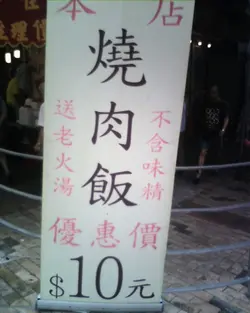 本店
燒肉飯
送老火湯
不含味精
優惠價
$10元